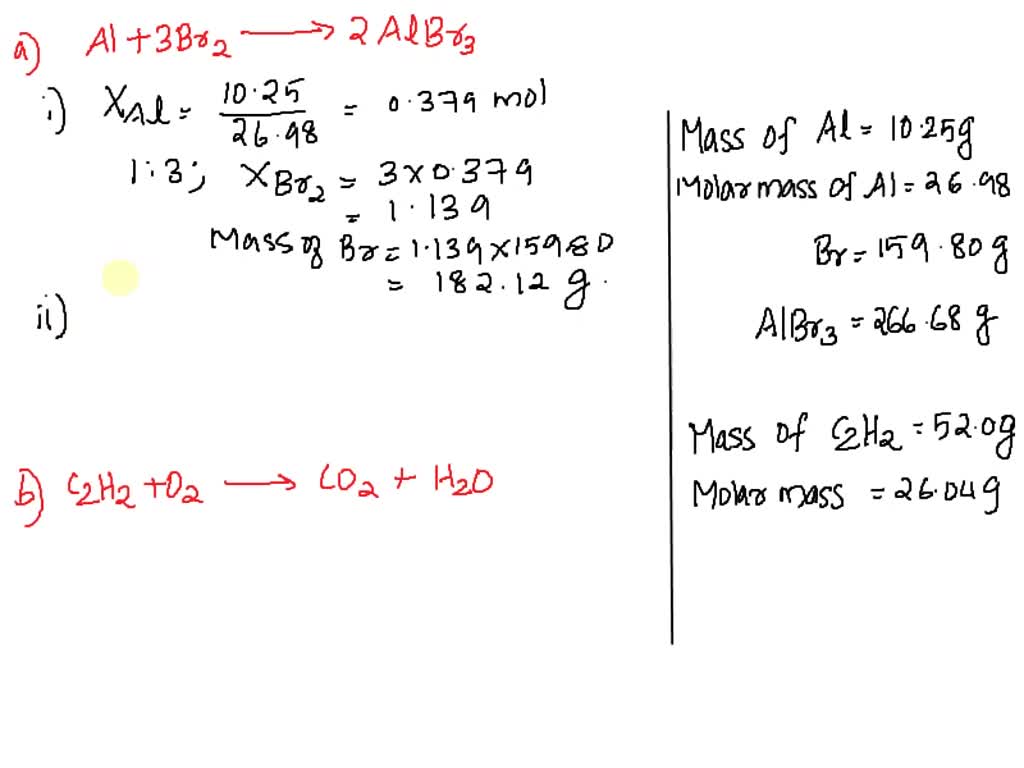 a) Al + 3Br2 → 2AlBr3
i) XAl = 10.25 / 26.98 = 0.379 mol
1:3; XBr2 = 3×0.379
= 1.139
Mass of Br = 1.139×15980
= 182.12 g.
ii)
b) C2H2 + O2 → CO2 + H2O
Mass of Al = 10.25g
Molar mass of Al = 26.98
Br = 159.80 g
AlBr3 = 266.68 g
Mass of C2H2 = 52.0g
Molar mass = 26.04g